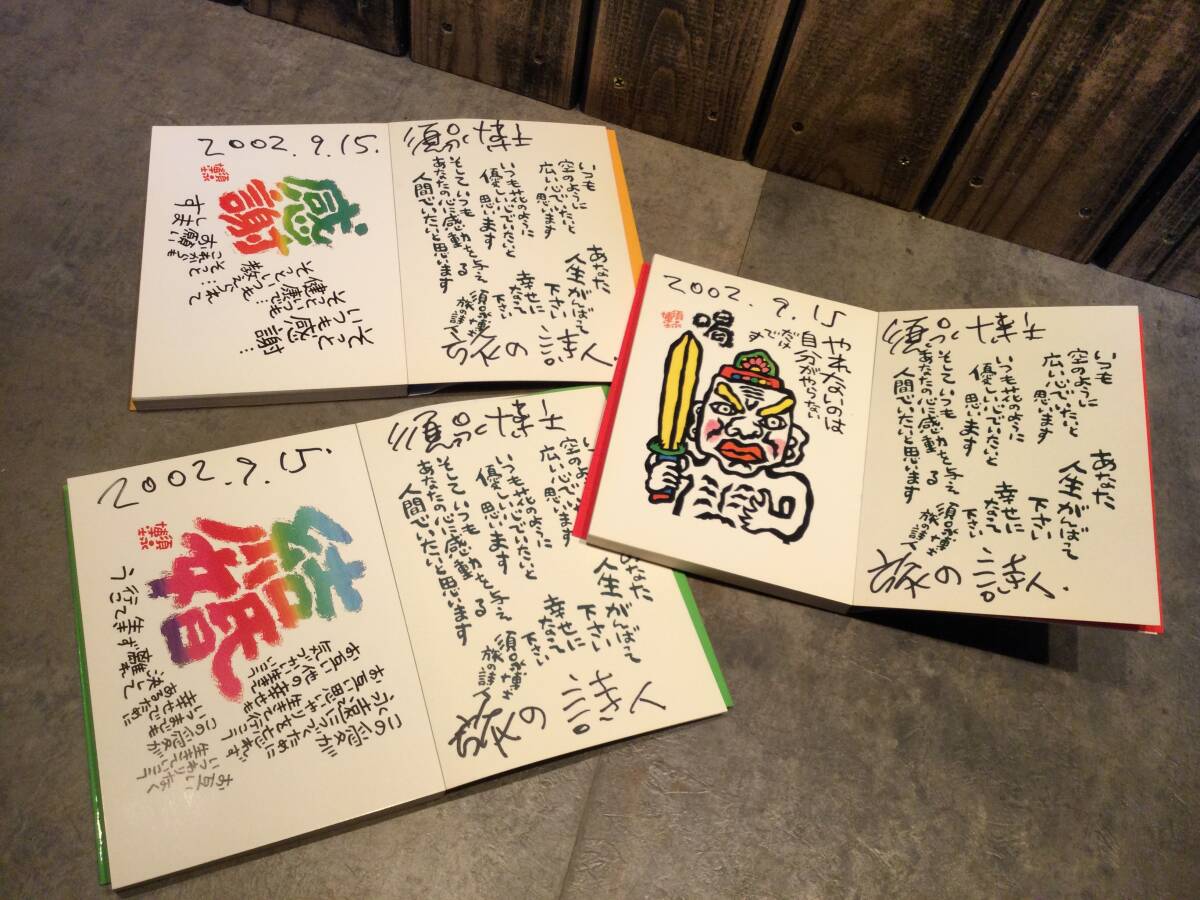 2002.9.15.
感謝
須永博士
そっと
いつも感謝…
そっといつも
健康…
そっといつも
教えられて
そっと
お願い
します
須永博士
いつも
空のように
広い心でいたいと
思います
いつも花のように
優しい心でいたいと
思います
そしていつも
あなたの心に感動を与える
人間でいたいと思います
あなた
人生がんばって
下さい
幸せに
なって
下さい
須永博士
旅の詩人
旅の詩人.
2002.9.15
須永博士
喝
やれないのは
自分がやらない
だけ
です
須永博士
いつも
空のように
広い心でいたいと
思います
いつも花のように
優しい心でいたいと
思います
そしていつも
あなたの心に感動を与える
人間でいたいと思います
あなた
人生がんばって
下さい
幸せに
なって
下さい
須永博士
旅の詩人
旅の詩人.
2002.9.15
結婚
須永博士
この愛が
永遠につづくために
お互い
幸せで
あるために
いつまでも
この愛が
生きていこう
お互い
いつわりなく
決して
須永博士
空のように
広い心でいたいと
思います
いつも花のように
優しい心でいたいと
思います
そしていつも
あなたの心に感動を与える
人間でいたいと思います
あなた
人生がんばって
下さい
幸せに
なって
下さい
須永博士
旅の詩人
旅の詩人